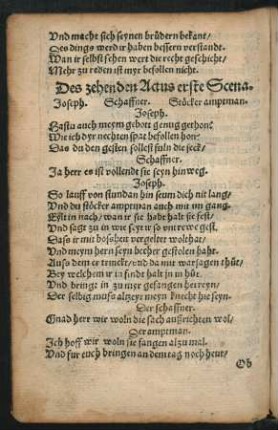 Vnd macht sich seynen brüdern bekant/
Des dings werd ir haben bessern verstandt.
Wan ir selbst sehen wert die recht geschicht/
Mehr zu reden ist myr befollen nicht.
Des zehenden Actus erste Scena.
Joseph. Schaffner. Stöcker amptman.
Joseph.
Hastu auch meym gebott genug gethon?
Wie ich dyr nechten spat befollen hon/
Das du den gesten sollest fuln die seck/
Schaffner.
Ja herr es ist vollendt sie seyn hinweg.
Joseph.
So lauff von stundan hin seum dich nit lang/
Vnd du stöcker amptman auch mit im gang.
Eylt in nach/ wan ir sie habt halt sie fest/
Vnd sagt zu in wie seyt ir so vntrewe gest.
Das ir mit boßheit vergeltet wolthat/
Vnd meym hern seyn becher gestolen habt.
Auß dem er trinckt/ vnd da mit warsagen thůt/
Bey welchem ir in findt halt in in hůt.
Vnd bringt in zu myr gefangen hereyn/
Der selbig muß altzeyt meyn knecht hie seyn.
Der schaffner.
Gnad herr wir woln die sach außrichten wol/
Der amptman.
Ich hoff wir woln sie fangen alzu mal.
Vnd fur euch bringen an dem tag noch heut/
Ob